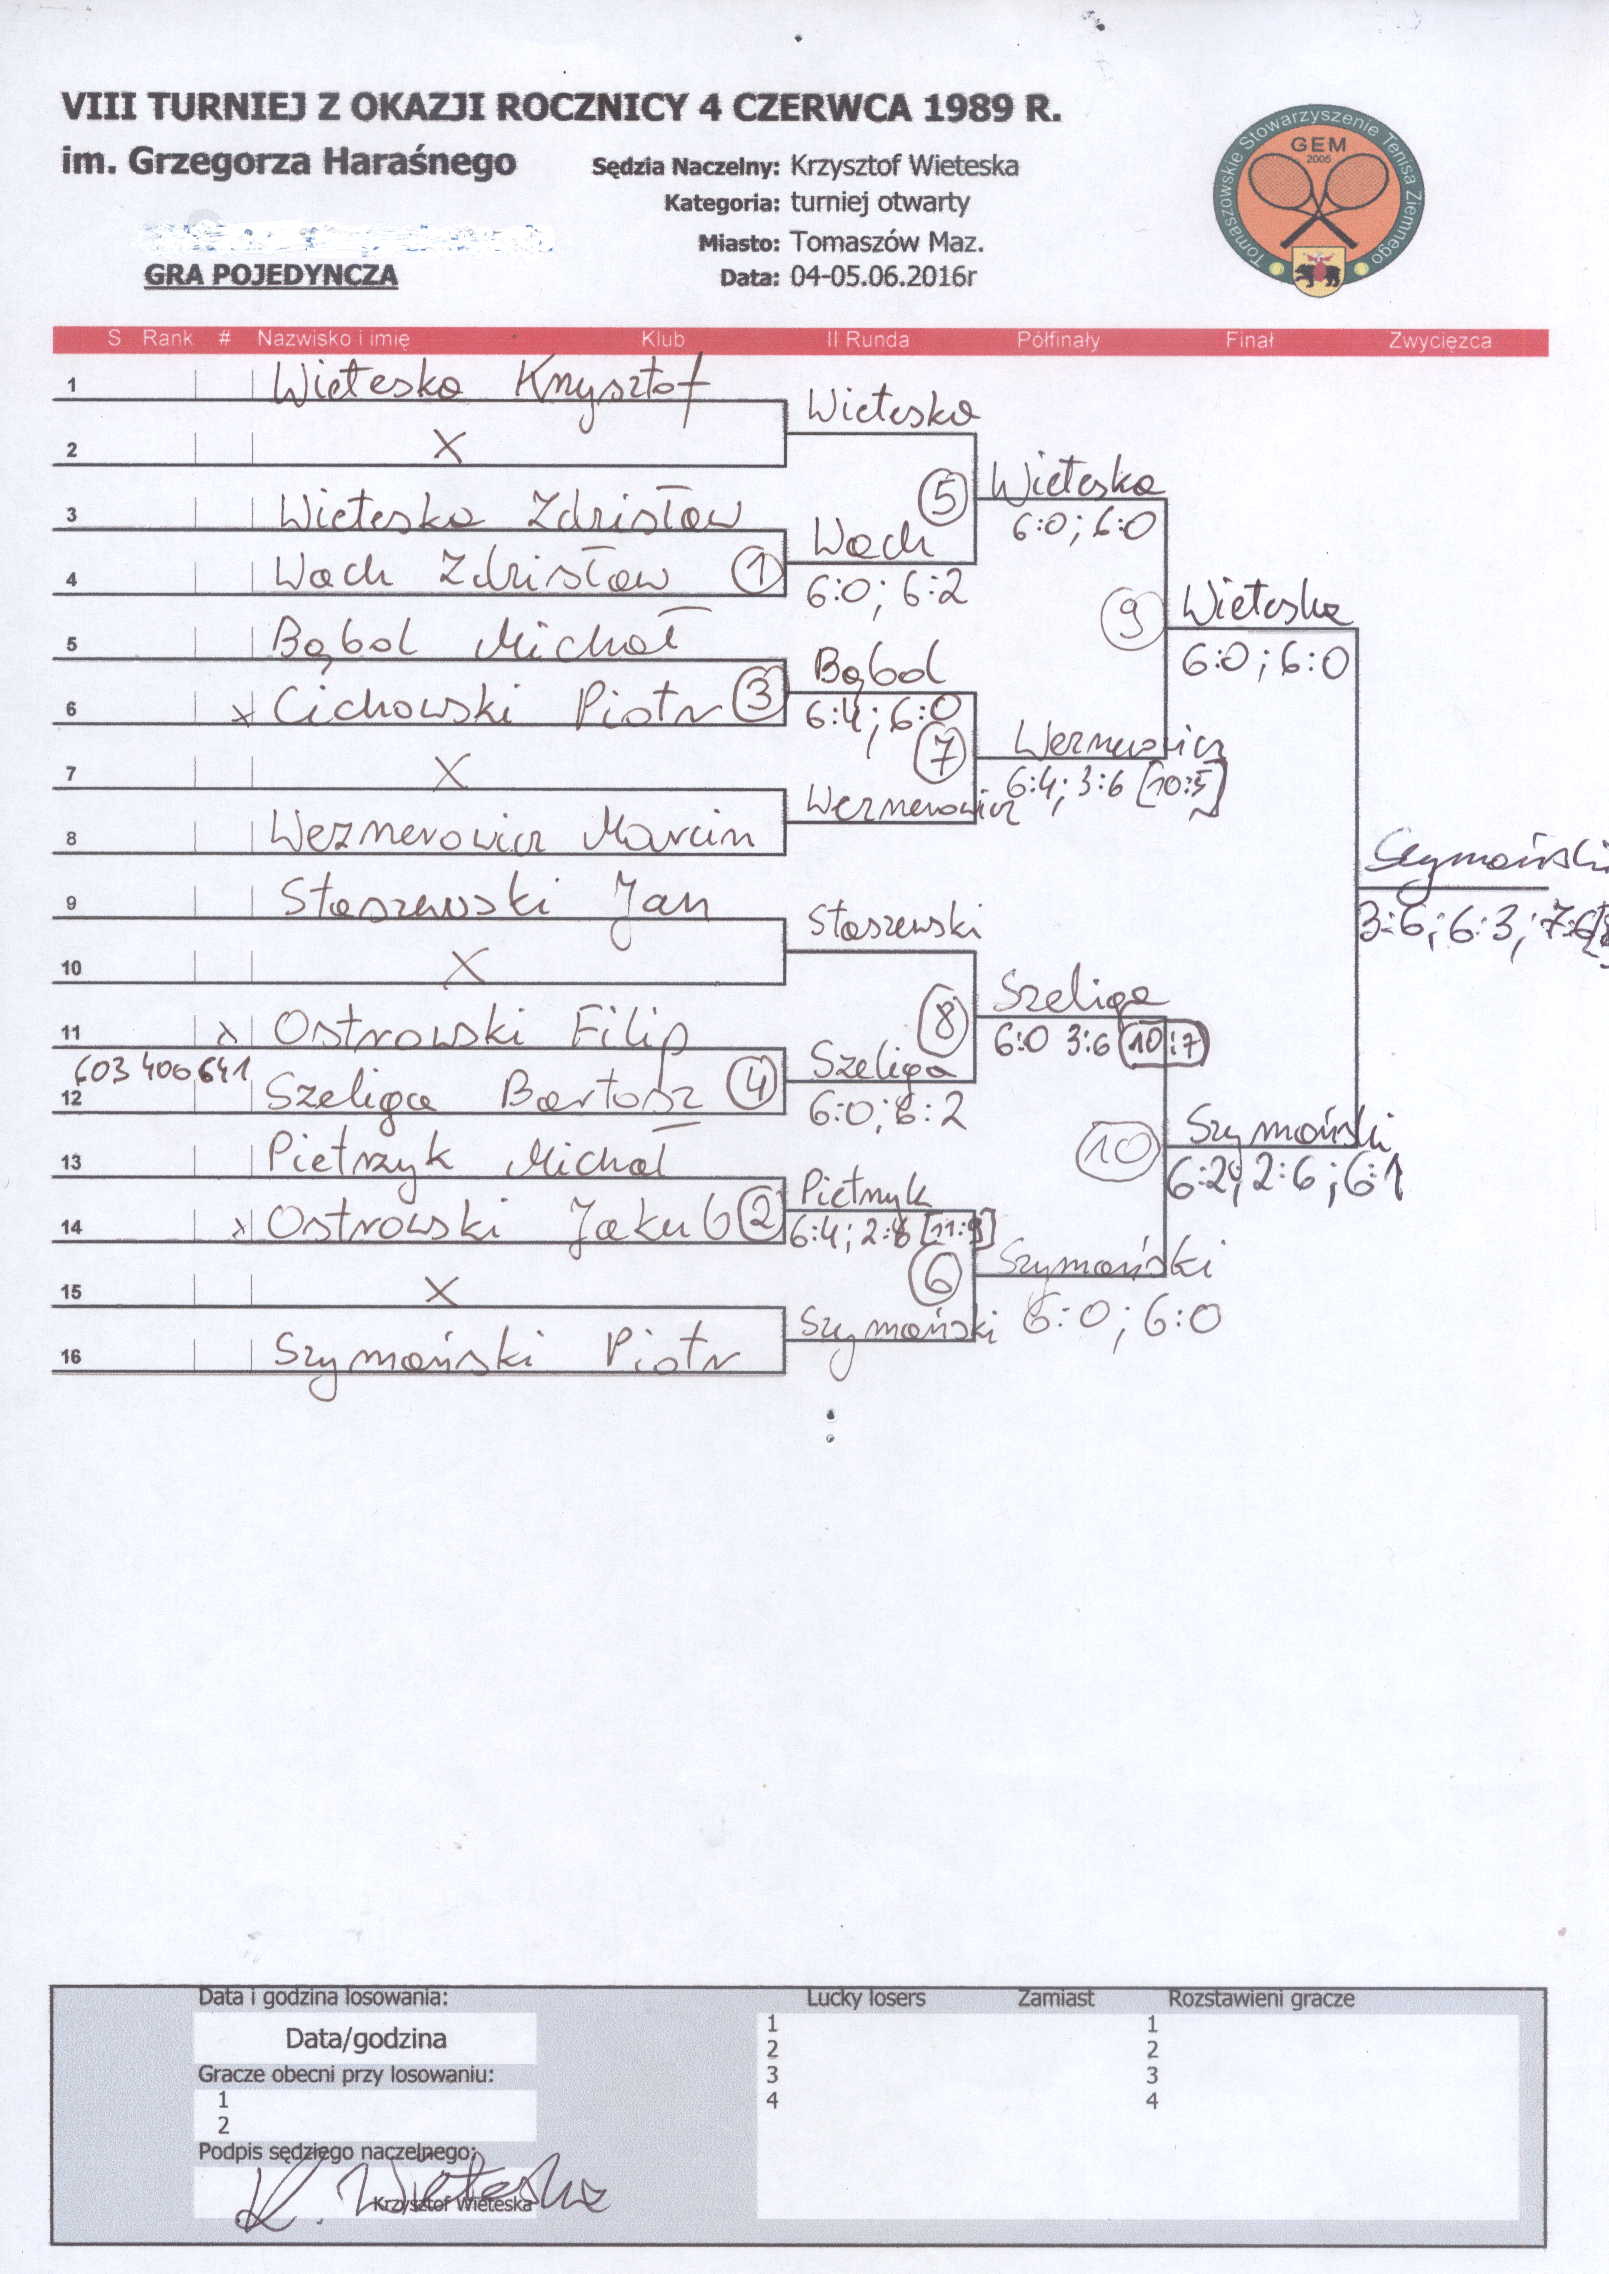 VIII TURNIEJ Z OKAZJI ROCZNICY 4 CZERWCA 1989 R.
im. Grzegorza Haraśnego
Sędzia Naczelny: Krzysztof Wieteska
Kategoria: turniej otwarty
Miasto: Tomaszów Maz.
Data: 04-05.06.2016r
GRA POJEDYNCZA
Tomaszowskie Stowarzyszenie Tenisa Ziemnego
GEM
2005
S Rank # Nazwisko i imię Klub II Runda Półfinały Finał Zwycięzca
1 Wieteska Krzysztof
Wieteska
2 X
5 Wieteska
6:0; 6:0
3 Wieteska Zdzisław
Wach
4 Wach Zdzisław 1
6:0; 6:2
9 Wieteska
6:0; 6:0
5 Bąbol Michał
Bąbol
6 x Cichowski Piotr 3
6:4; 6:0
7 Weznerowicz
6:4; 3:6 [10:5]
7 X
Weznerowicz
8 Weznerowicz Marcin
Szymański
3:6; 6:3; 7:6
9 Staszewski Jan
Staszewski
10 X
8 Szeliga
6:0 3:6 10:7
11 x Ostrowski Filip
603 406 641
Szeliga
12 Szeliga Bartosz 4
6:0; 6:2
10 Szymański
6:2; 2:6; 6:1
13 Pietrzyk Michał
Pietrzyk
14 x Ostrowski Jakub 2
6:4; 2:6 [11:9]
6 Szymański
6:0; 6:0
15 X
Szymański
16 Szymański Piotr
Data i godzina losowania:
Data/godzina
Gracze obecni przy losowaniu:
1
2
Podpis sędziego naczelnego:
K. Wieteska
Krzysztof Wieteska
Lucky losers Zamiast Rozstawieni gracze
1 1
2 2
3 3
4 4